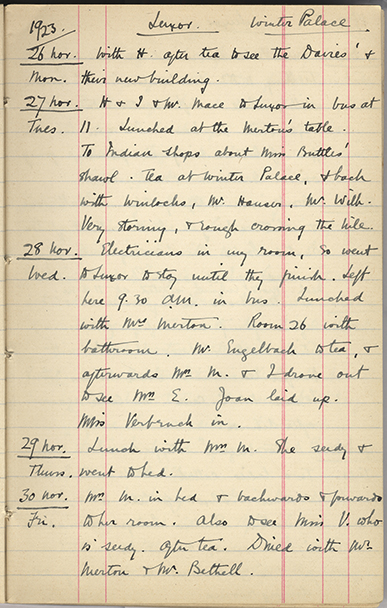 1923. Luxor. Winter Palace.
26 Nov. With H. after tea to see the Davies' &
Mon. their new building.
27 Nov. H & I & Mr. Mace to Luxor in bus at
Tues. 11. Lunched at the Merton's table.
To Indian shops about Miss Buttles'
shawl. Tea at Winter Palace, & back
with Winlocks, Mr. Hauser, Mr. Wilk.
Very stormy, & rough crossing the Nile.
28 Nov. Electricians in my room, so went
Wed. to Luxor to stay until they finish. Left
here 9.30 A.M. in bus. Lunched
with Mrs Merton. Room 26 with
bathroom. Mr. Engelbach to tea, &
afterwards Mrs M. & I drove out
to see Mrs E. Joan laid up.
Miss Verbruck in.
29 Nov. Lunch with Mrs M. She seedy &
Thurs. went to bed.
30 Nov. Mrs M. in bed & backwards & forwards
Fri. to her room. Also to see Miss V. who
is seedy. After tea. Dined with Mr.
Merton & Mr. Bethell.